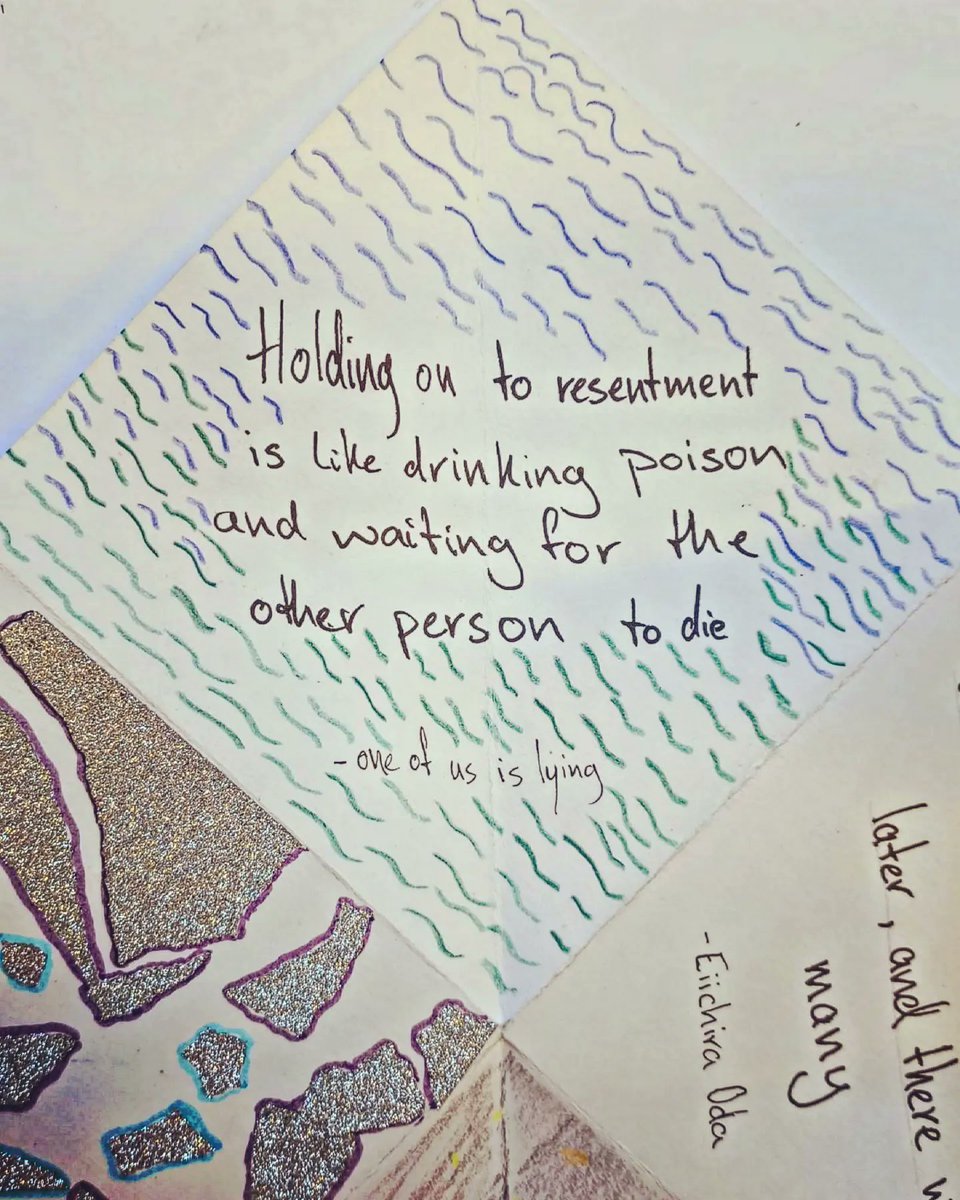 Holding on to resentment
is like drinking poison
and waiting for the
other person to die
- one of us is lying
later, and there
many
- Eiichiro Oda